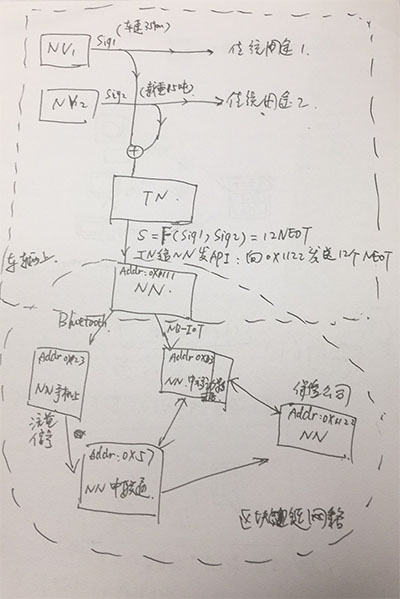 NV1
Sig1
(车速35km)
传统用途1.
NV2
Sig2
(载重15吨)
传统用途2.
TN.
S=F(Sig1,Sig2)=12NEOT
TN给NN发API:向0X1122发送12个NEOT
车辆上
Addr:0X1111
NN.
Bluetooth
NB-IOT
Addr0X23
NN手机上
NN.中
保险公司
Addr:0X1122
NN
流量
信号
Addr:0X57
NN中联通
区块链网络